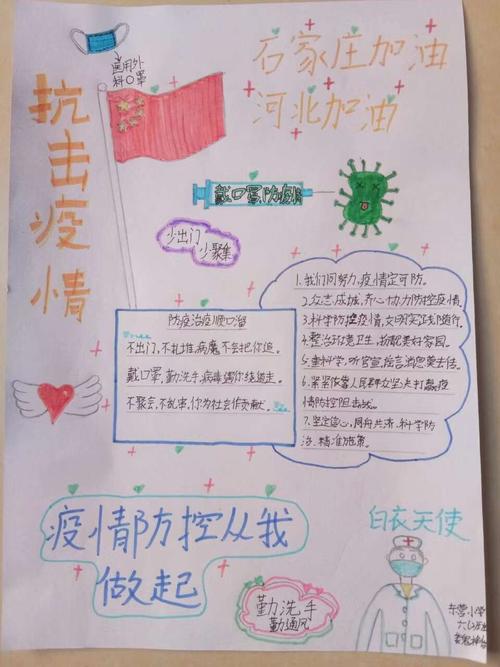 医用外
科口罩
抗击疫情
石家庄加油
河北加油
戴口罩防疫情
少出门
少聚集
防疫治疫顺口溜
不出门,不扎堆,病魔不会把你追。
戴口罩,勤洗手,病毒偶你绕道走。
不聚会,不乱串,你为社会作贡献。
1.我们同努力,疫情定可防。
2.众志成城,齐心协力防控疫情。
3.科学防控疫情,文明实践随行。
4.整治环境卫生,扮靓美好家园。
5.重科学,听官宣,谣言消息莫去信。
6.紧紧依靠人民群众坚决打赢疫
情防控阻击战。
7.坚定信心,同舟共济,科学防
治,精准施策。
疫情防控从我
做起
勤洗手
勤通风
白衣天使